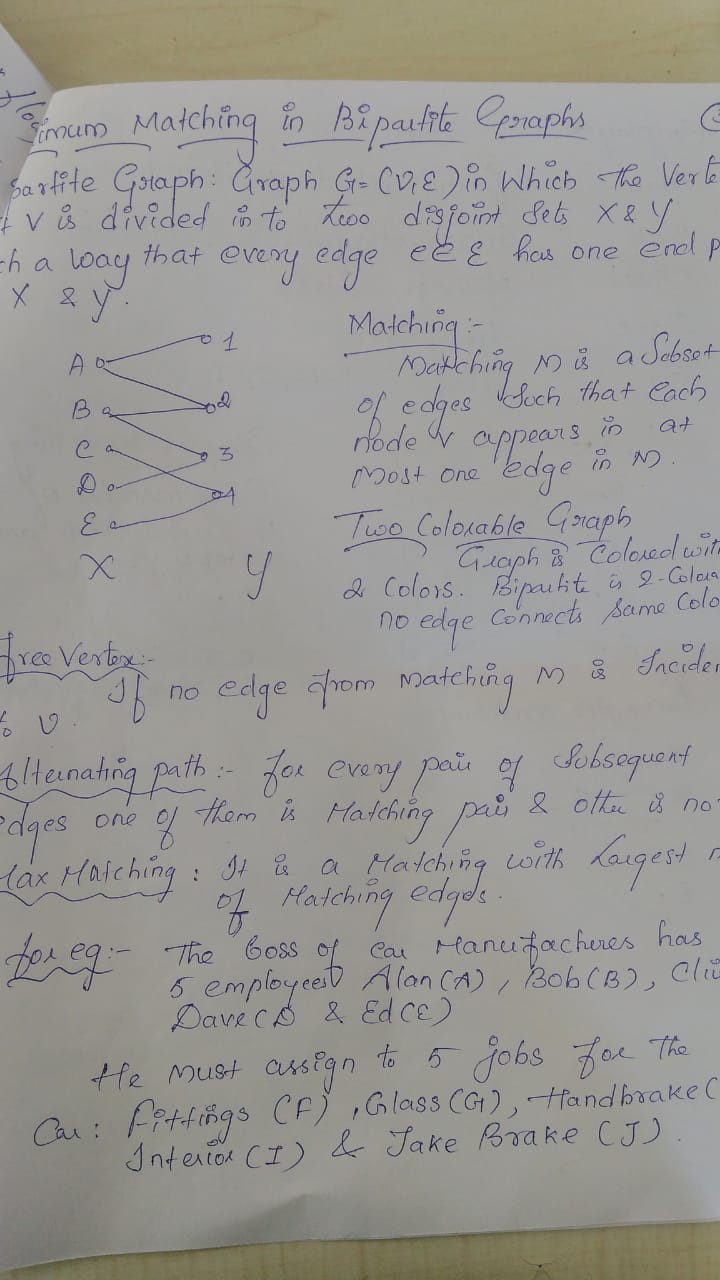 imum Matching in Bipartite Graphs
partite Graph: Graph G=(V,E) in Which the Verte
t V is divided in to two disjoint Sets X & Y
ch a way that every edge e∈E has one end p
X & Y.
Matching:-
Matching M is a Subset
of edges Such that each
node v appears in at
Most one edge in M.
A
B
C
D
E
1
2
3
4
X Y
Two Colorable Graph
Graph is Colored with
2 Colors. Bipartite is 2-Colora
no edge Connects Same Colo
free Vertex:-
If no edge from Matching M is Inciden
to V.
Alternating path:- for every pair of Subsequent
edges one of them is Matching pair & other is no
Max Matching: It is a Matching with Largest n
of Matching edges.
for eg:- The boss of Car Manufactures has
5 employees Alan(A), Bob(B), Cli
Dave(D & Ed(E)
He Must assign to 5 jobs for The
Car: fittings (F), Glass(G), Handbrake(
Interior (I) & Jake Brake (J).